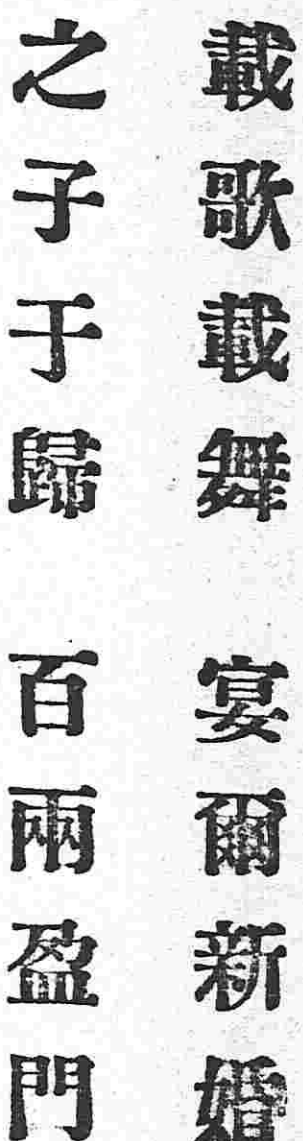 載歌載舞　宴爾新婚
之子于歸　百兩盈門